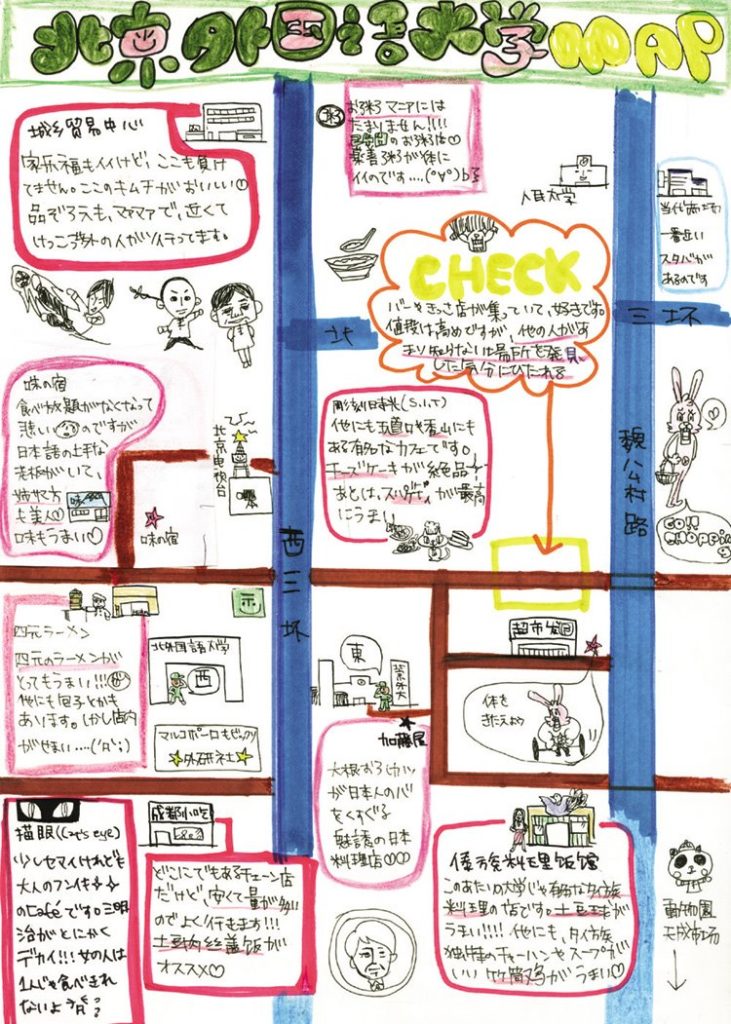 北京外国语大学MAP
城乡貿易中心
家乐福もイイけど、ここも負け
てません。ここのキムチがおいしい
品ぞろえも、マァマァで、近くて
けっこう外の人が
粥
お粥マニアには
たまりません!!!!
のお粥は
イイのです
人民大学
一番近い
スタバが
あるのです
CHECK
バーや
店が集っていて、好きです。
値段は高めですが、他の人があ
まり知らない場所を発見
した気分にひたれる
北
三环
味の宿
食べ放題がなくなって
悲しいのですが
日本語の上手な
老板がいて、
も美人
味もうまい♡
味
北京电视台
味の宿
彫刻日時光(S.I.T)
他にも五道口や香山にも
ある有名なカフェです。
チーズケーキが絶品
あとは、スパゲティが最高
にうまい
魏公村路
西三环
四元ラーメン
四元のラーメンが
とってもうまい!!!
他にも包子とかも
あります。しかし店内
がせまい
北外国語大学
西
マルコポーロもビックリ
☆外研社☆
東
北京外大
加藤屋
大根おろしカツ
が日本人の心
をくすぐる
魅誘の日本
料理店
超市发
体を
きたえよう
猫眼(Cat's eye)
少しセマイけれども
大人のフンイキ
のCaféです。三明
治がとにかく
デカイ!!!女の人は
1人じゃ食べきれ
ないよう
成都小吃
どこにでもあるチェーン店
だけど、安くて量が多い
のでよく行きます!!!
土豆肉丝盖饭が
オススメ♡
傣族料理饭馆
このあたりの大学じゃ有名なタイ族
料理の店です。土豆球が
うまい!!!!他にも、タイ族
独特のチャーハンやスープが
いい竹筒鸡がうまい♡
動物園
天成市場